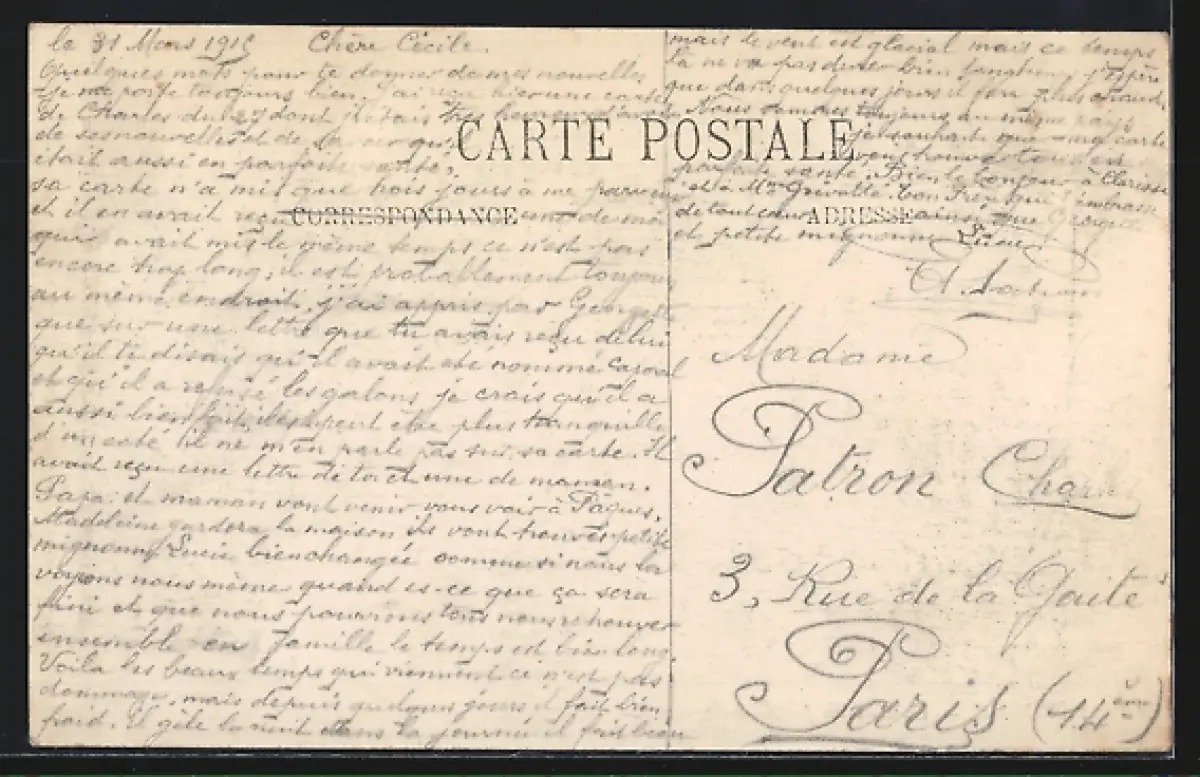 le 31 Mars 1915 Chère Cécile.
Quelques mots pour te donner de mes nouvelles
je me porte toujours bien, J'ai reçu hier une carte
de Charles du 27 dont j'étais très heureux d'avoir
de ses nouvelles et de
était aussi en parfaite santé,
sa carte n'a mis que trois jours à me parvenir
et il en avait reçu une de moi
qui avait mis le même temps ce n'est pas
encore trop long, il est probablement toujours
au même endroit, j'ai appris par Georgette
que sur une lettre que tu avais reçu de lui
qu'il te disais qu'il avait été nommé caporal
et qu'il a refusé les galons je crois qu'il a
aussi bien fait, il est peut être plus tranquille
d'un coté il ne m'en parle pas sur sa carte. Il
avait reçu une lettre de toi et une de maman.
Papa et maman vont venir vous voir à Pâques,
Madeleine gardera la maison ils vont trouver petite
mignonne Lucie bien changée comme si nous la
voyions nous même quand es-ce que ça sera
fini et que nous pourrons tous nous retrouver
ensemble en famille le temps est bien long,
Voila les beaux temps qui viennent ce n'est pas
dommage, mais depuis quelques jours il fait bien
froid. il gèle la nuit dans la journée il fait bien
mais le vent est glacial mais ce temps
là ne va pas durer bien longtemps, j'espère
que dans quelques jours il fera plus chaud.
Nous sommes toujours au même pays
je souhaite que ma carte
vous trouve tous en
parfaite santé. Bien le bonjour à Clarisse
et à Mme Ton Frère qui t'embrasse
de tout cœur ainsi que
et petite mignonne Lucie
CARTE POSTALE
CORRESPONDANCE
ADRESSE
Madame
Patron Charles
3, Rue de la Gaité
Paris (14ème)